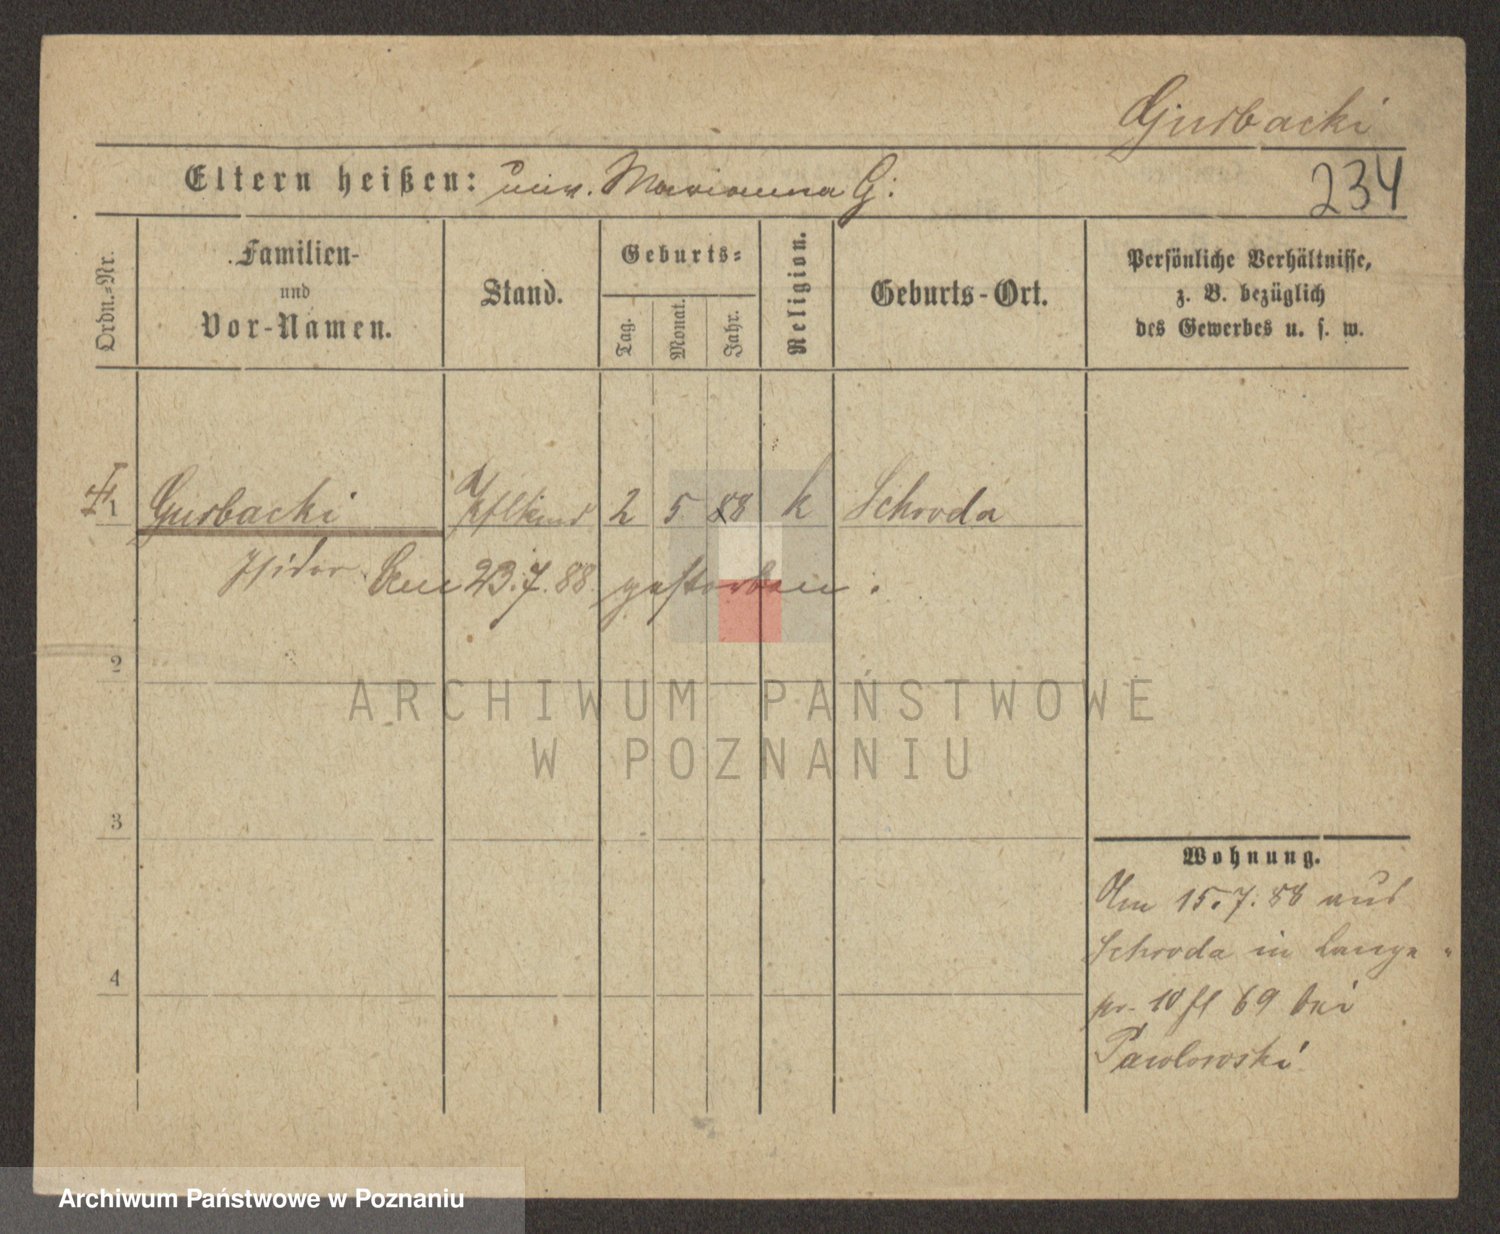 Gursbacki
Eltern heißen: unv. Marianna G.
234
Ordn.=Nr.
Familien-
und
Vor-Namen.
Stand.
Geburts=
Tag.
Monat.
Jahr.
Religion.
Geburts-Ort.
Persönliche Verhältnisse,
z. B. bezüglich
des Gewerbes u. s. w.
1 Gursbacki Pflkind 2 5 88 k Schroda
Isidor Am 23.7.88. gestorben.
2
3
4
Wohnung.
Am 15.7.88 aus
Schroda in Lange
10 69 bei
Pawlowski
ARCHIWUM PAŃSTWOWE
W POZNANIU
Archiwum Państwowe w Poznaniu